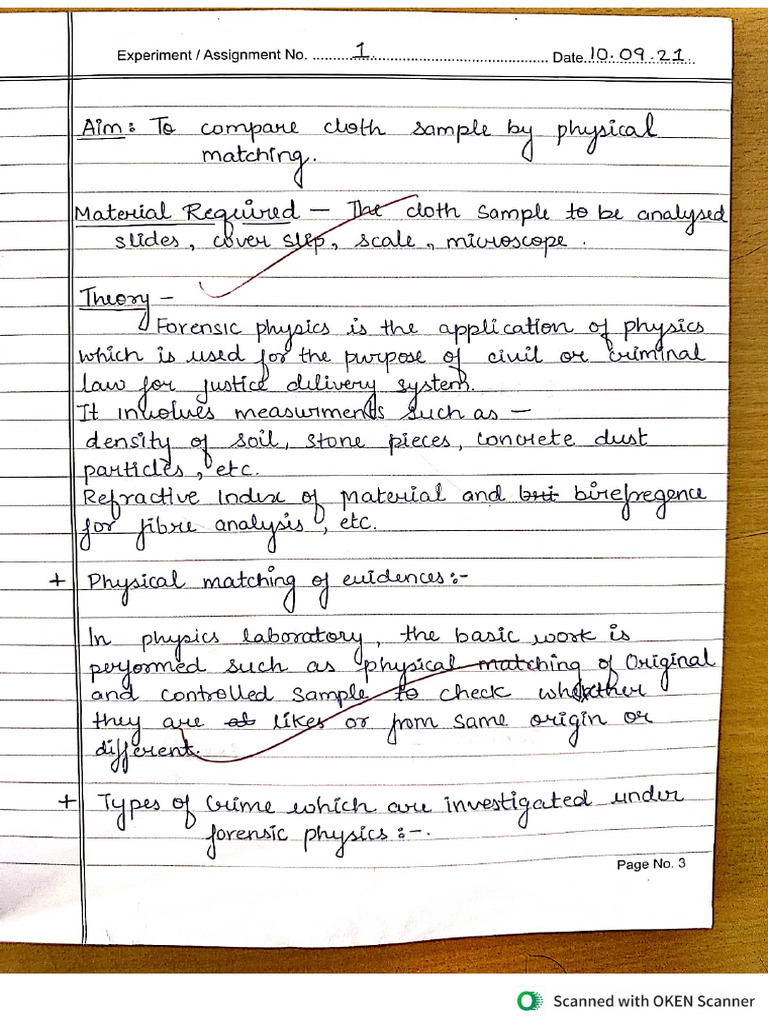 Experiment / Assignment No. 1 Date. 10.09.21
Aim: To compare cloth sample by physical
matching.
Material Required – The cloth sample to be analysed
slides, cover slep, scale, microscope.
Theory –
Forensic physics is the application of physics
which is used for the purpose of civil or criminal
law for justice delivery system.
It involves measurments such as –
density of soil, stone pieces, concrete dust
particles, etc.
Refractive Index of material and birefregence
for fibre analysis, etc.
+ Physical matching of evidences:-
In physics laboratory, the basic work is
performed such as physical matching of Original
and controlled sample to check whether
they are likes or from same origin or
different.
+ Types of Crime which are investigated under
forensic physics:-.
Page No. 3
Scanned with OKEN Scanner